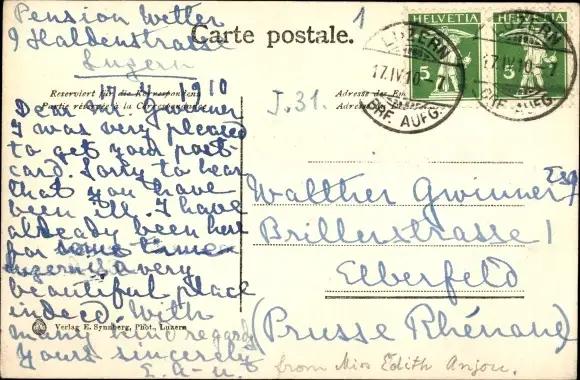 Pension Wetter
9 Haldenstrasse
Luzern
Carte postale.
1
HELVETIA
5
HELVETIA
5
LUZERN
17.IV.10.-7
BRF. AUFG.
LUZERN
17.IV.10.-7
BRF. AUFG.
Reserviert für die Korrespondenz
Partie réservée à la Correspondance
J.31.
17.4.1910
Dear Mr Gwinner,
I was very pleased
to get your post-
card. Sorry to hear
that you have
been ill. I have
already been here
for some time
Luzern is a very
beautiful place
indeed. With
many kind regards
Yours sincerely
E. A-n.
Verlag E. Synnberg, Phot., Luzern
Walther Gwinner Esq
Brillerstrasse 1
Elberfeld
(Prusse Rhénane)
from Miss Edith Anjou.